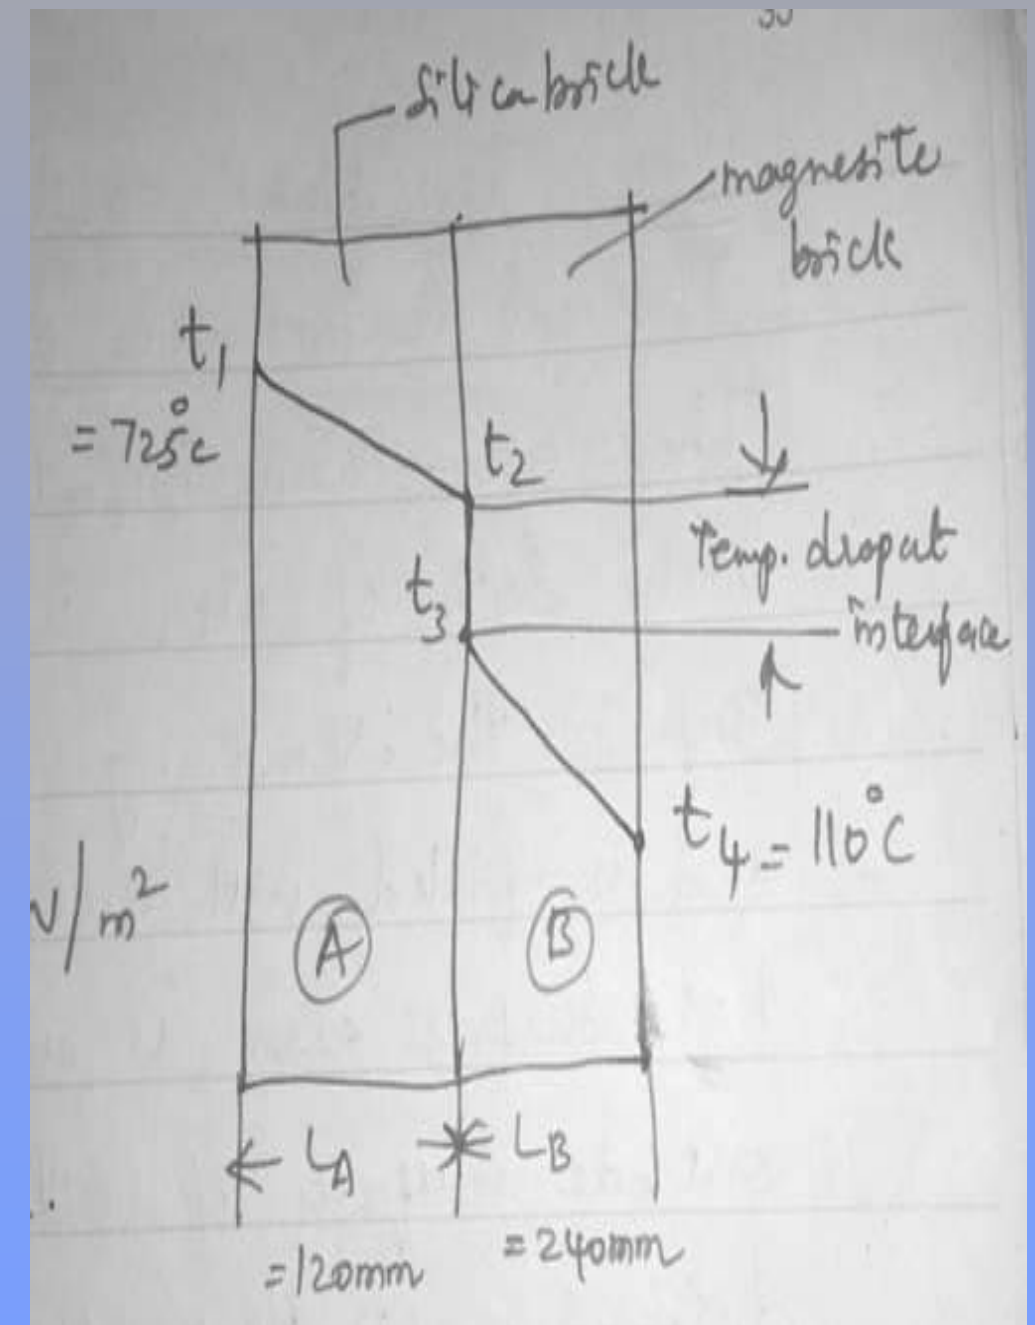 silica brick
magnesite
brick
t1
= 725°C
t2
Temp. drop at
interface
t3
t4 = 110°C
/m²
A
B
LA
LB
= 120mm
= 240mm